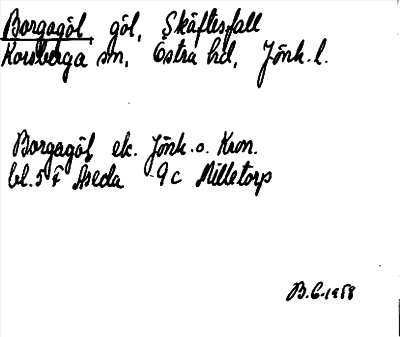 Borgagöl, göl, Skäftesfall
Korsberga sn, Östra hd, Jönk. l.
Borgagöl ek. Jönk. o. Kron.
bl. 5 F Åseda 9c Milletorp
B.G. 1958